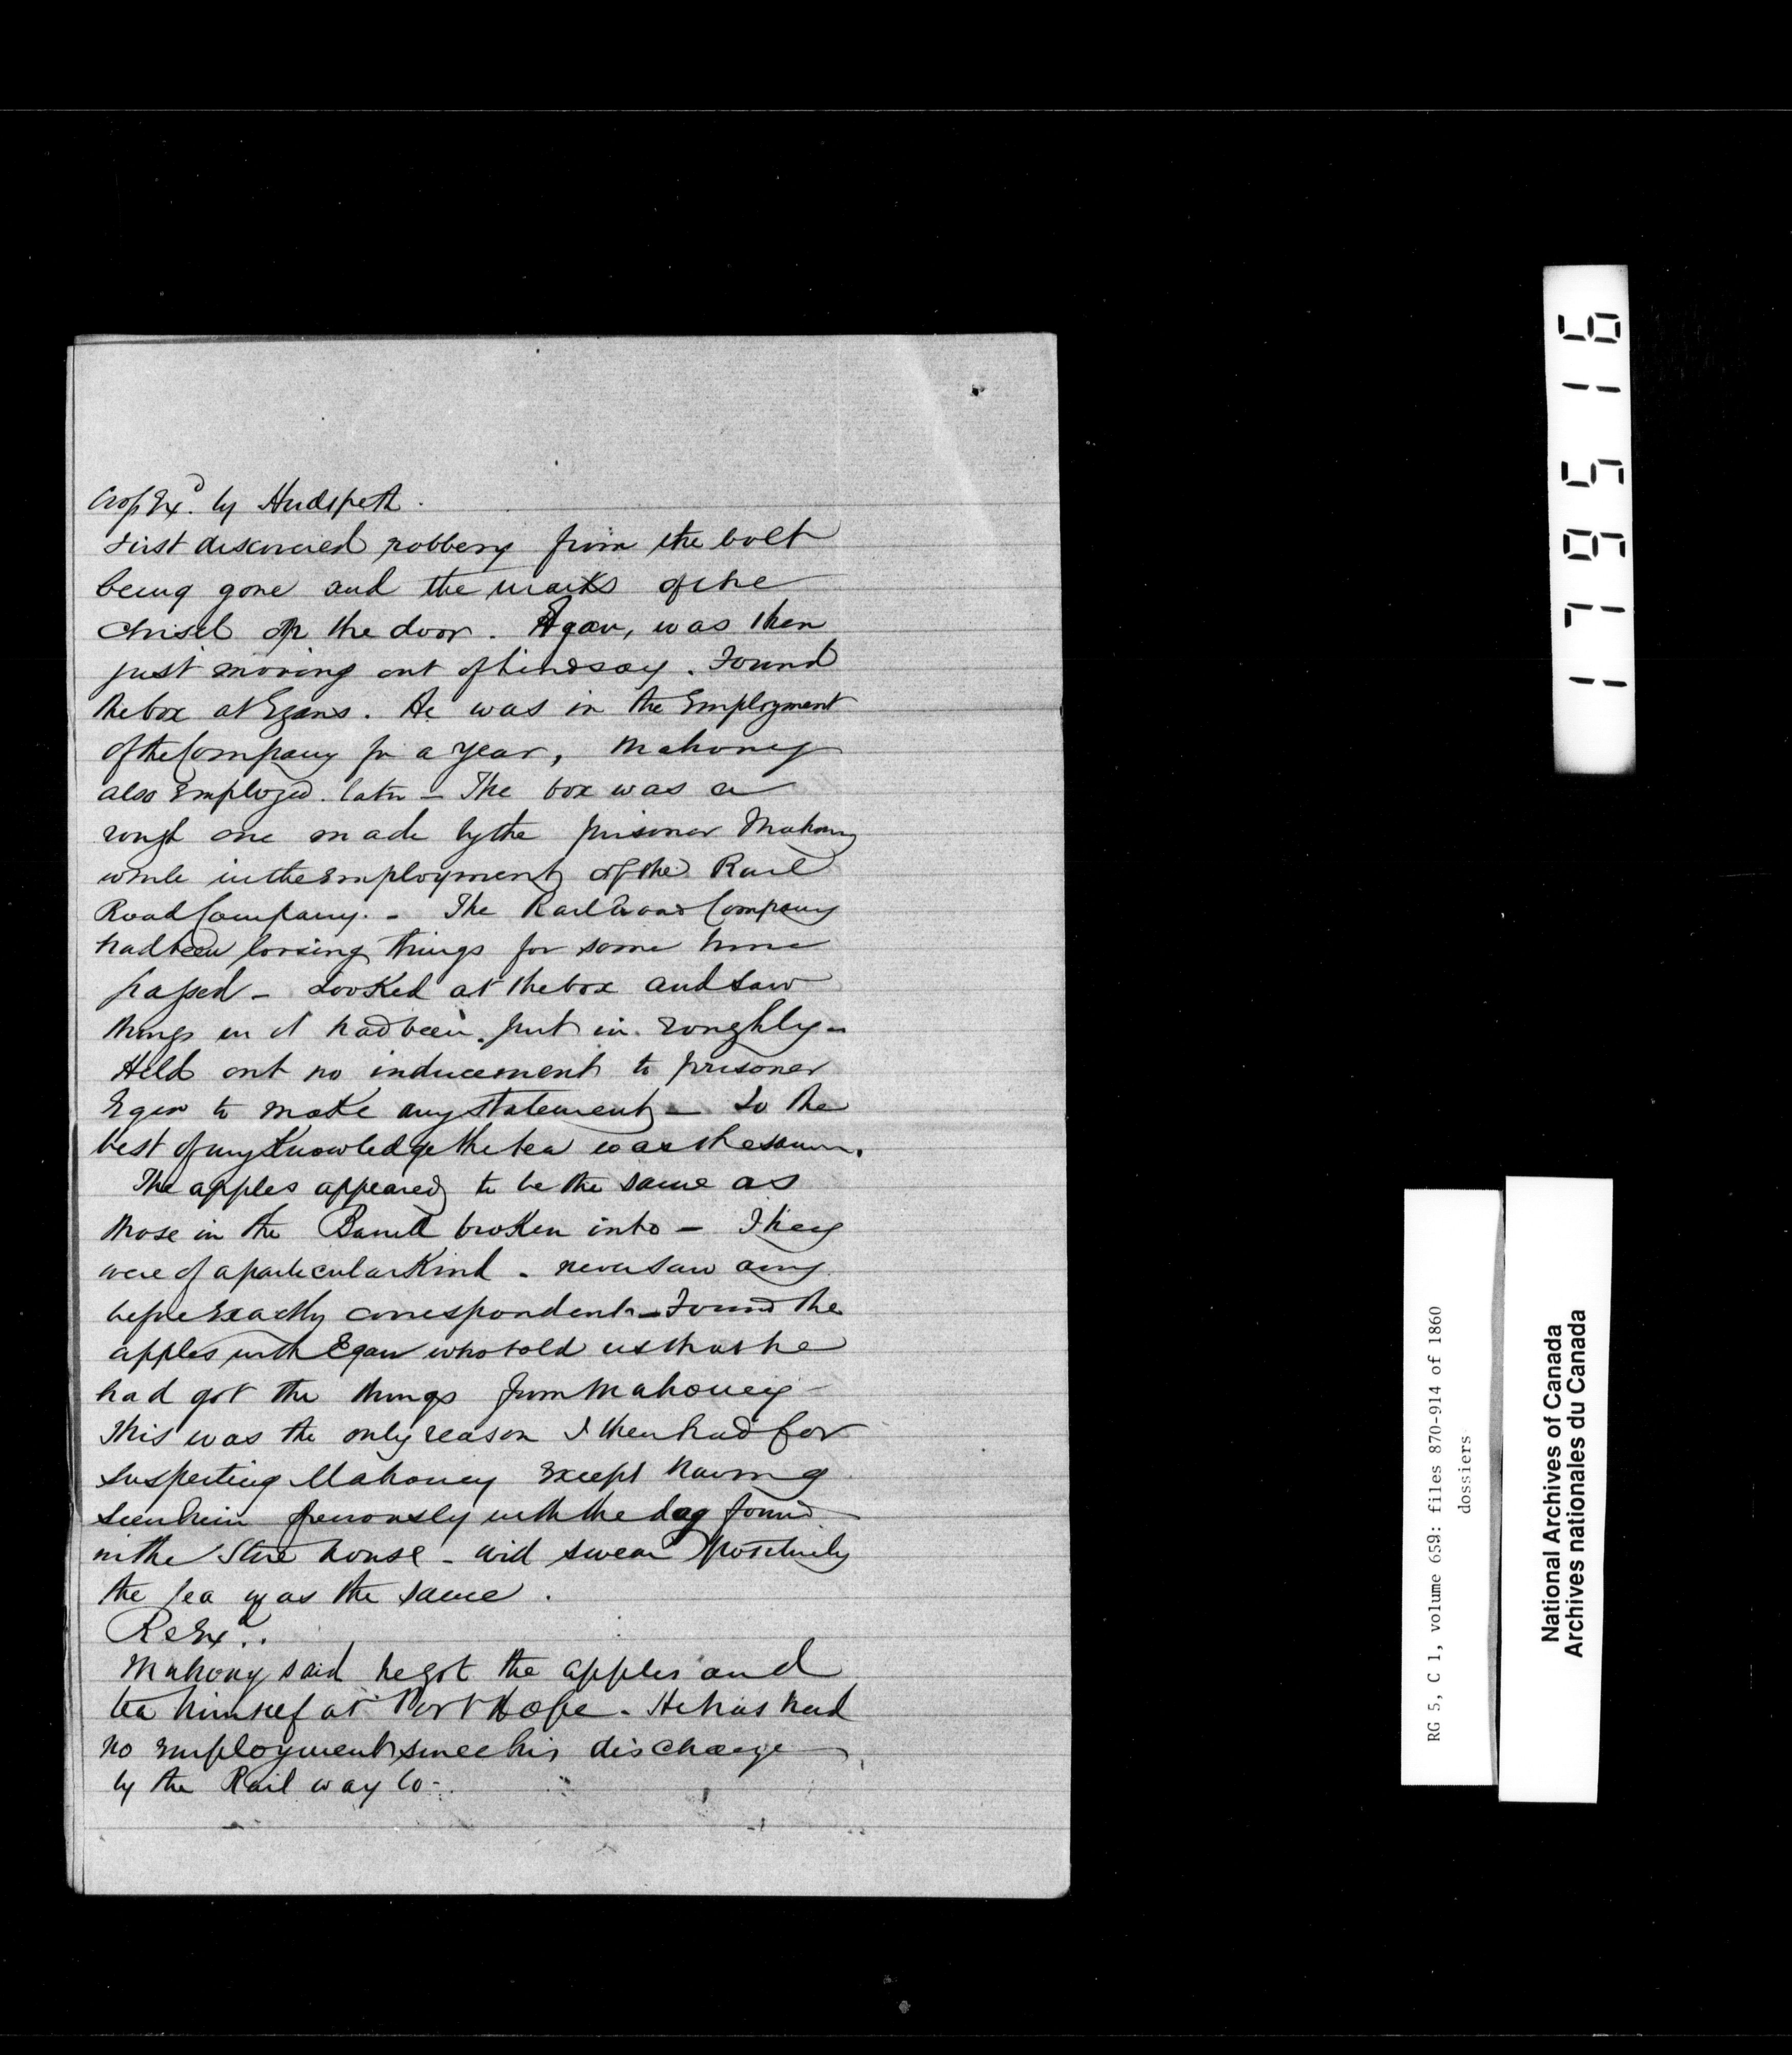 Cross Exd. by Hudspeth.
First discovered robbery from the bolt
being gone and the marks of the
chisel on the door. Egan, was then
just moving out of Lindsay. Found
the box at Egans. He was in the Employment
of the Company for a year, Mahoney
also Employed later - The box was a
rough one made by the prisoner Mahony
while in the Employment of the Rail
Road Company. - The Rail Road Company
had been loosing things for some time
passed - Looked at the box and saw
things in it had been put in roughly -
Held out no inducement to prisoner
Egan to make any statement - To the
best of my Knowledge the tea was the same.
The apples appeared to be the same as
those in the Barrell broken into - They
were of a particular Kind - never saw any
before Exactly correspondent - Found the
apples with Egan who told us that he
had got the things from Mahoney -
This was the only reason I then had for
suspecting Mahoney Except having
seen him previously with the dog found
in the Store house - swear positively
the tea was the same.
ReExd..
Mahony said he got the apples and
tea himself at Port Hope - He has had
no Employment since his discharge
by the Rail way Co-.
179516
RG 5, C 1, volume 659: files 870-914 of 1860
dossiers
National Archives of Canada
Archives nationales du Canada